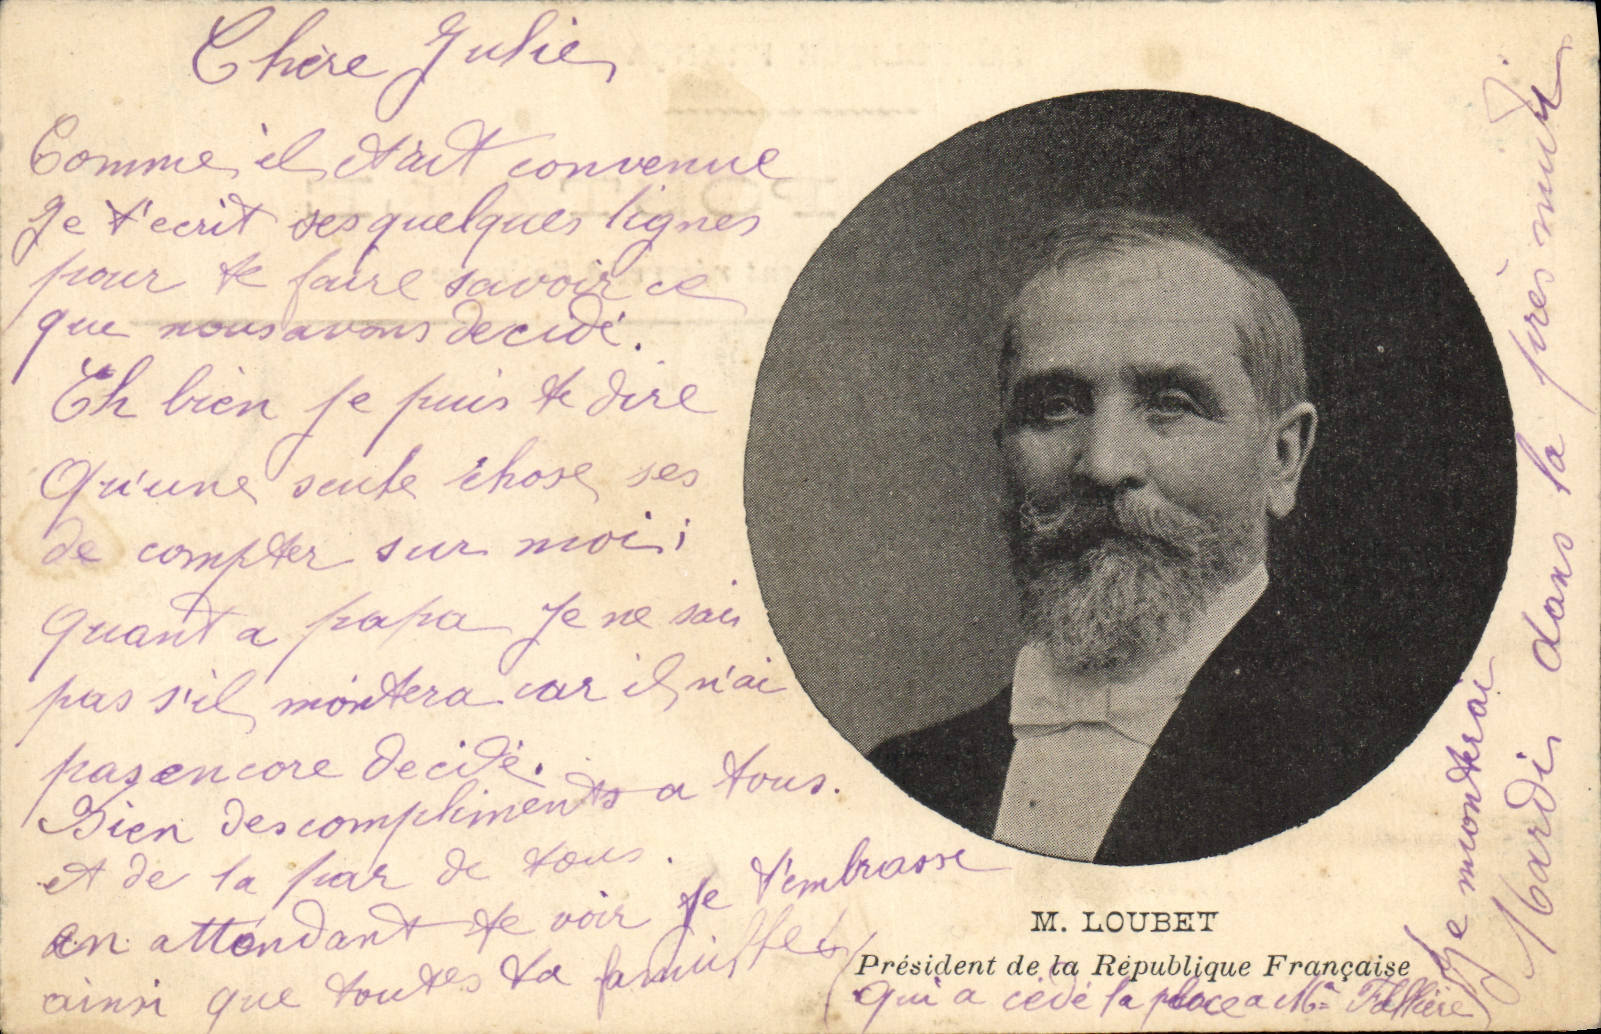 Chère Julie
Comme il était convenue
Je t'ecrit ses quelques lignes
pour te faire savoir ce
que nous avons decidé.
Eh bien je puis te dire
Qu'une seule chose ses
de compter sur moi ;
Quant a papa Je ne sais
pas s'il montera car il n'ai
pas encore decidé.
Bien des compliments a tous.
et de la par de tous.
en attendant te voir je t'embrasse
ainsi que toutes ta famille
M. LOUBET
Président de la République Française
(Qui a cédé la place a Mr Fallière)
Je monterai
Mardi dans la près midi